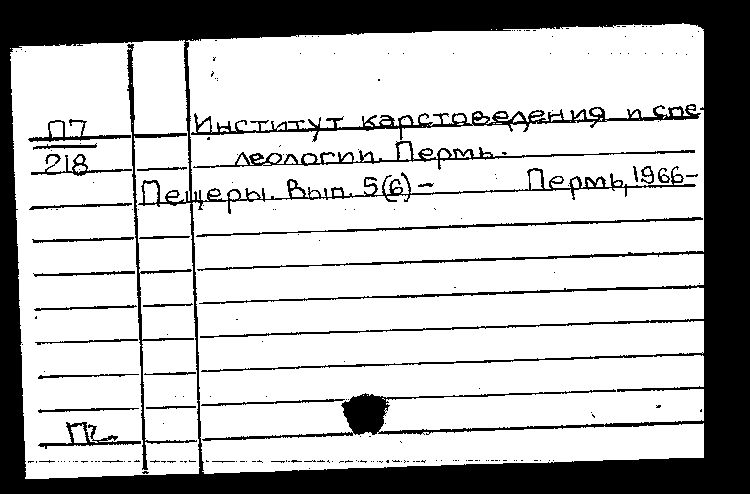 П7 Институт карстоведения и спе-
218 леологии. Пермь.
Пещеры. Вып. 5(6)- Пермь, 1966-